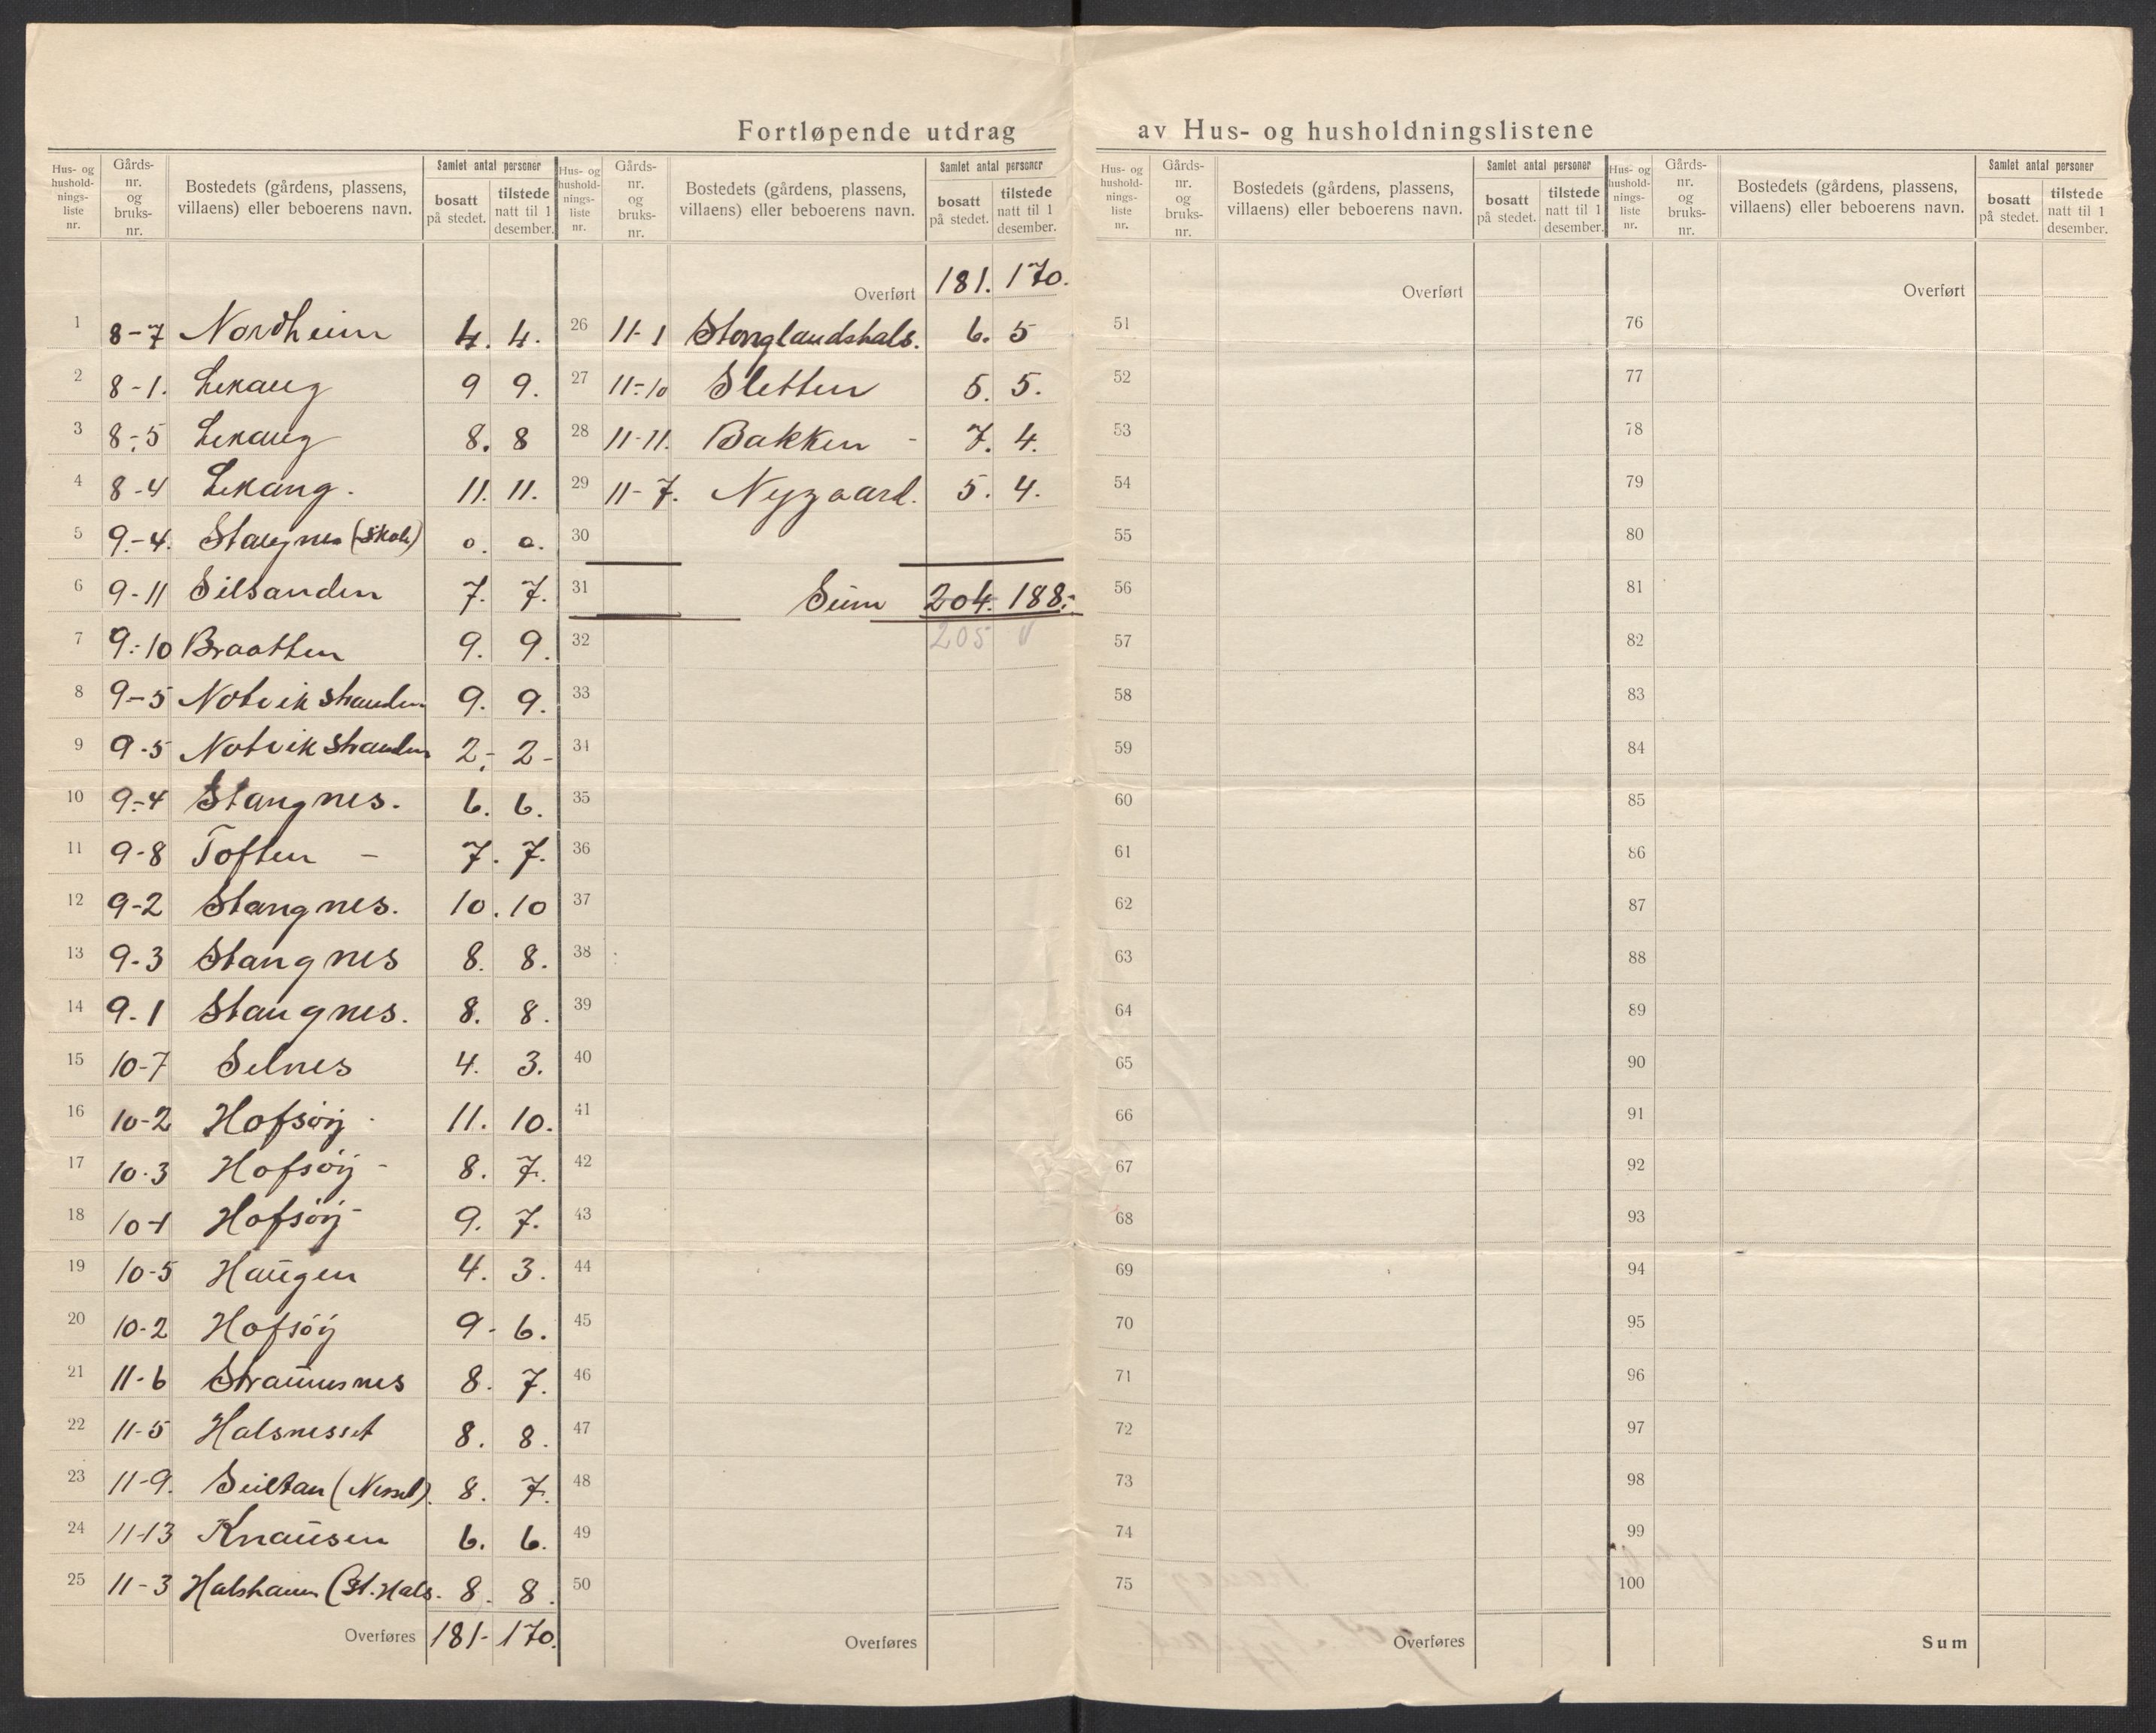 Fortløpende utdrag av Hus- og husholdningslistene
Hus- og hushold- nings- liste nr. Gårds- nr. og bruks- nr. Bostedets (gårdens, plassens, villaens) eller beboerens navn. Samlet antal personer bosatt på stedet. tilstede natt til 1 desember.
1 8-7 Nordheim 4. 4.
2 8-1. Lekang 9 9.
3 8-5 Lekang 8. 8
4 8-4 Lekang. 11. 11.
5 9-4. Stangnes (Skole) 0. 0.
6 9-11 Silsanden 7. 7.
7 9-10 Braatten 9. 9.
8 9-5 Notvikstranden 9. 9.
9 9-5 Notvikstranden 2- 2-
10 9-4 Stangnes. 6. 6.
11 9-8 Toften - 7. 7.
12 9-2 Stangnes. 10. 10
13 9-3 Stangnes 8. 8.
14 9-1 Stangnes. 8. 8.
15 10-7 Selnes 4. 3.
16 10-2 Hofsöy 11. 10.
17 10-3 Hofsöy - 8. 7.
18 10-1 Hofsöy - 9. 7.
19 10-5 Haugen 4. 3.
20 10-2 Hofsöy 9- 6.
21 11-6 Straumsnes 8. 7.
22 11-5 Halsnesset 8. 8.
23 11-9. (Nesset). 8. 7.
24 11-13 Knausen 6. 6.
25 11-3 Halshaun (St. Hals. 8. 8.
Overføres 181- 170.
Hus- og hushold- nings- liste nr. Gårds- nr. og bruks- nr. Bostedets (gårdens, plassens, villaens) eller beboerens navn. Samlet antal personer bosatt på stedet. tilstede natt til 1 desember.
Overført 181. 170.
26 11-1 Stonglandshals. 6. 5
27 11-10 Sletten 5. 5.
28 11-11. Bakken - 7. 4.
29 11-7. Nygaard. 5. 4.
30
31 Sum 204. 188.-
32 205 v
33
34
35
36
37
38
39
40
41
42
43
44
45
46
47
48
49
50
Overføres
Hus- og hushold- nings- liste nr. Gårds- nr. og bruks- nr. Bostedets (gårdens, plassens, villaens) eller beboerens navn. Samlet antal personer bosatt på stedet. tilstede natt til 1 desember.
Overført
51
52
53
54
55
56
57
58
59
60
61
62
63
64
65
66
67
68
69
70
71
72
73
74
75
Overføres
Hus- og hushold- nings- liste nr. Gårds- nr. og bruks- nr. Bostedets (gårdens, plassens, villaens) eller beboerens navn. Samlet antal personer bosatt på stedet. tilstede natt til 1 desember.
Overført
76
77
78
79
80
81
82
83
84
85
86
87
88
89
90
91
92
93
94
95
96
97
98
99
100
Sum